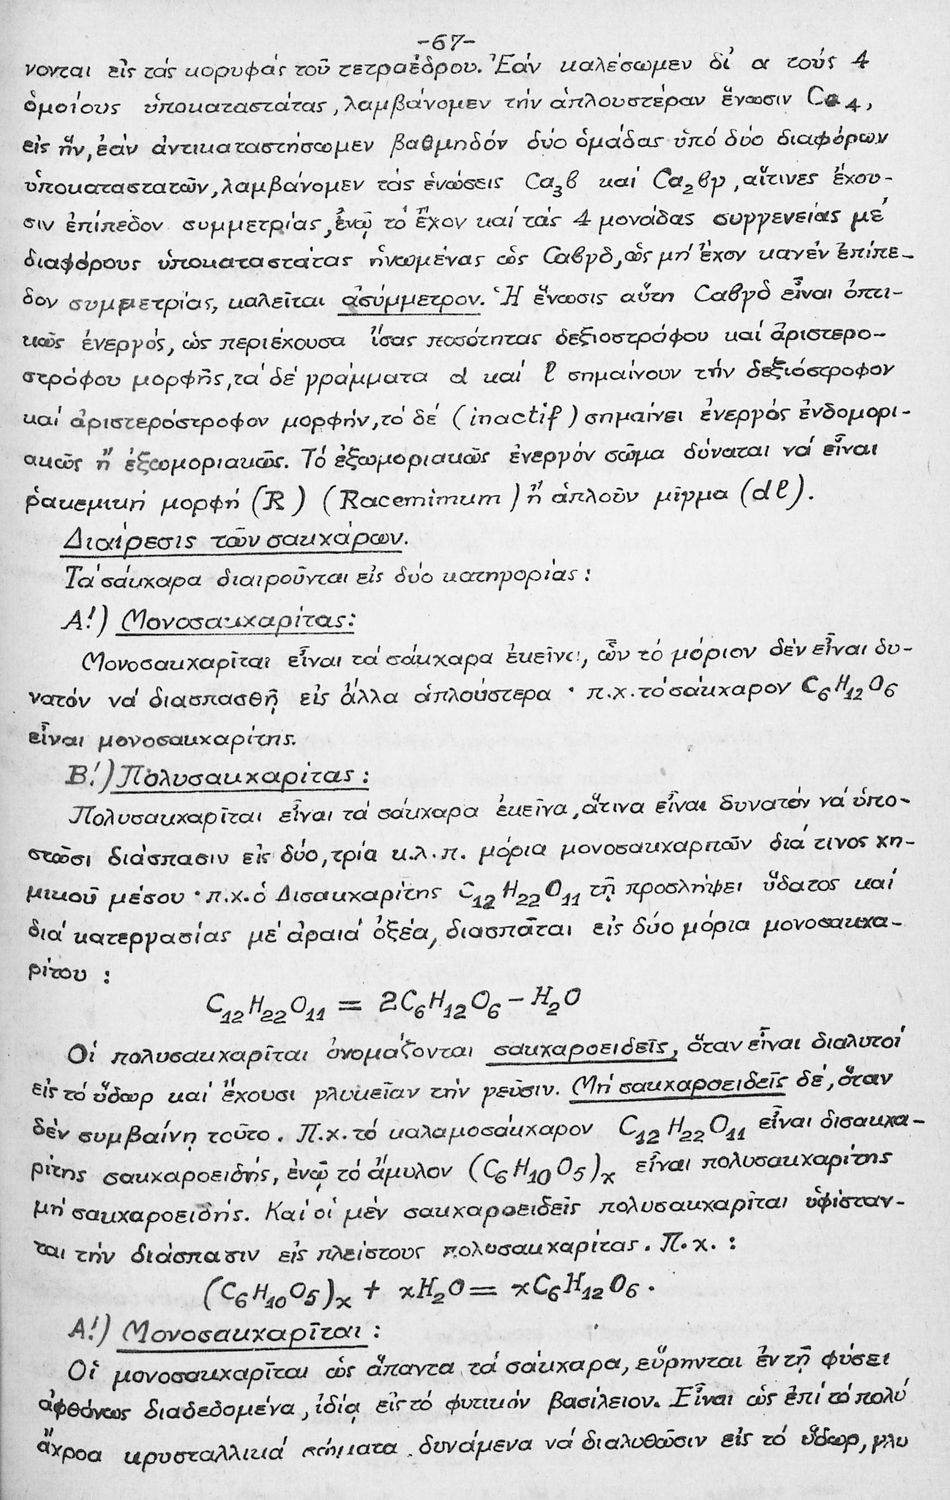 -67-
νονται εἰς τάς κορυφάς τοῦ τετραέδρου. Ἐάν καλέσωμεν δι' α τούς 4
ὁμοίους ὑποκαταστάτας, λαμβάνομεν τήν ἁπλουστέραν ἕνωσιν Ca₄,
εἰς ἥν, ἐάν ἀντικαταστήσωμεν βαθμηδόν δύο ὁμάδας ὑπό δύο διαφόρων
ὑποκαταστατῶν, λαμβάνομεν τάς ἑνώσεις Ca₃β καί Ca₂βγ, αἵτινες ἔχου-
σιν ἐπίπεδον συμμετρίας, ἐνῷ τό ἔχον καί τάς 4 μονάδας συγγενείας μέ
διαφόρους ὑποκαταστάτας ἡνωμένας ὡς Cαβγδ, ὡς μή ἔχον κανέν ἐπίπε-
δον συμμετρίας, καλεῖται ἀσύμμετρον. Ἡ ἕνωσις αὕτη Cαβγδ εἶναι ὀπτι-
κῶς ἐνεργός, ὡς περιέχουσα ἴσας ποσότητας δεξιοστρόφου καί ἀριστερο-
στρόφου μορφῆς, τά δέ γράμματα d καί l σημαίνουν τήν δεξιόστροφον
καί ἀριστερόστροφον μορφήν, τό δέ (inactif) σημαίνει ἐνεργός ἐνδομορι-
ακῶς ἤ ἐξωμοριακῶς. Τό ἐξωμοριακῶς ἐνεργόν σῶμα δύναται νά εἶναι
ρακεμική μορφή (R) (Racemimum) ἤ ἁπλοῦν μῖγμα (dl).
Διαίρεσις τῶν σακχάρων.
Τά σάκχαρα διαιροῦνται εἰς δύο κατηγορίας:
Α!) Μονοσακχαρίτας:
Μονοσακχαρῖται εἶναι τά σάκχαρα ἐκεῖνα, ὧν τό μόριον δέν εἶναι δυ-
νατόν νά διασπασθῇ εἰς ἄλλα ἁπλούστερα · π.χ. τό σάκχαρον C₆H₁₂O₆
εἶναι μονοσακχαρίτης.
Β!) Πολυσακχαρίτας:
Πολυσακχαρῖται εἶναι τά σάκχαρα ἐκεῖνα, ἅτινα εἶναι δυνατόν νά ὑπο-
στῶσι διάσπασιν εἰς δύο, τρία κ.λ.π. μόρια μονοσακχαριτῶν διά τινος χη-
μικοῦ μέσου · π.χ. ὁ Δισακχαρίτης C₁₂H₂₂O₁₁ τῇ προσλήψει ὕδατος καί
διά κατεργασίας μέ ἀραιά ὀξέα, διασπᾶται εἰς δύο μόρια μονοσακχα-
ρίτου:
C₁₂H₂₂O₁₁ = 2C₆H₁₂O₆ - H₂O
Οἱ πολυσακχαρῖται ὀνομάζονται σακχαροειδεῖς, ὅταν εἶναι διαλυτοί
εἰς τό ὕδωρ καί ἔχουσι γλυκεῖαν τήν γεῦσιν. Μή σακχαροειδεῖς δέ, ὅταν
δέν συμβαίνῃ τοῦτο. Π.χ. τό καλαμοσάκχαρον C₁₂H₂₂O₁₁ εἶναι δισακχα-
ρίτης σακχαροειδής, ἐνῷ τό ἄμυλον (C₆H₁₀O₅)ₓ εἶναι πολυσακχαρίτης
μή σακχαροειδής. Καί οἱ μέν σακχαροειδεῖς πολυσακχαρῖται ὑφίσταν-
ται τήν διάσπασιν εἰς πλείστους πολυσακχαρίτας. Π.χ.:
(C₆H₁₀O₅)ₓ + xH₂O = xC₆H₁₂O₆.
Α!) Μονοσακχαρῖται:
Οἱ μονοσακχαρῖται ὡς ἅπαντα τά σάκχαρα, εὕρηνται ἐν τῇ φύσει
ἀφθόνως διαδεδομένα, ἰδίᾳ εἰς τό φυτικόν βασίλειον. Εἶναι ὡς ἐπί τό πολύ
ἄχροα κρυσταλλικά σώματα, δυνάμενα νά διαλυθῶσιν εἰς τό ὕδωρ, γλυ